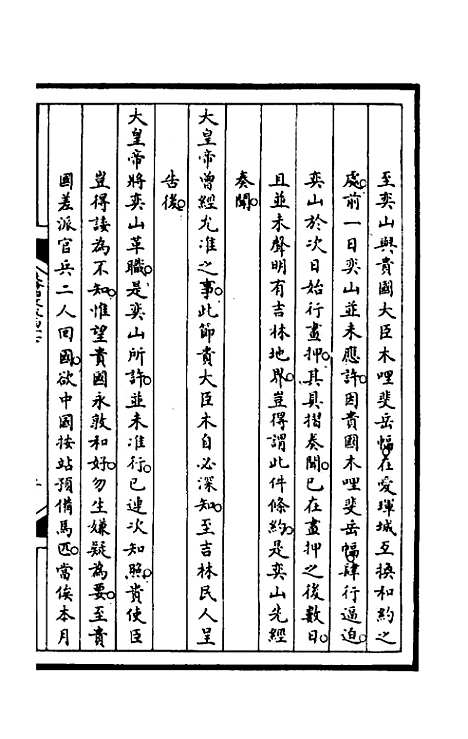 至奕山與貴國大臣木哩斐岳幅。在愛琿城互換和約之
處。前一日奕山並未應許。因貴國木哩斐岳幅。肆行逼迫。
奕山於次日始行畫押。其具摺奏聞。已在畫押之後數日。
且並未聲明有吉林地界。豈得謂此件條約。是奕山先經
奏聞。
大皇帝曾經允准之事。此節貴大臣木自必深知。至吉林民人呈
告後。
大皇帝將奕山革職。是奕山所許。並未准行。已連次知照。貴使臣
豈得諉為不知。惟望貴國永敦和好。勿生嫌疑為要。至貴
國差派官兵二人回國。欲中國按站預備馬匹。當俟本月